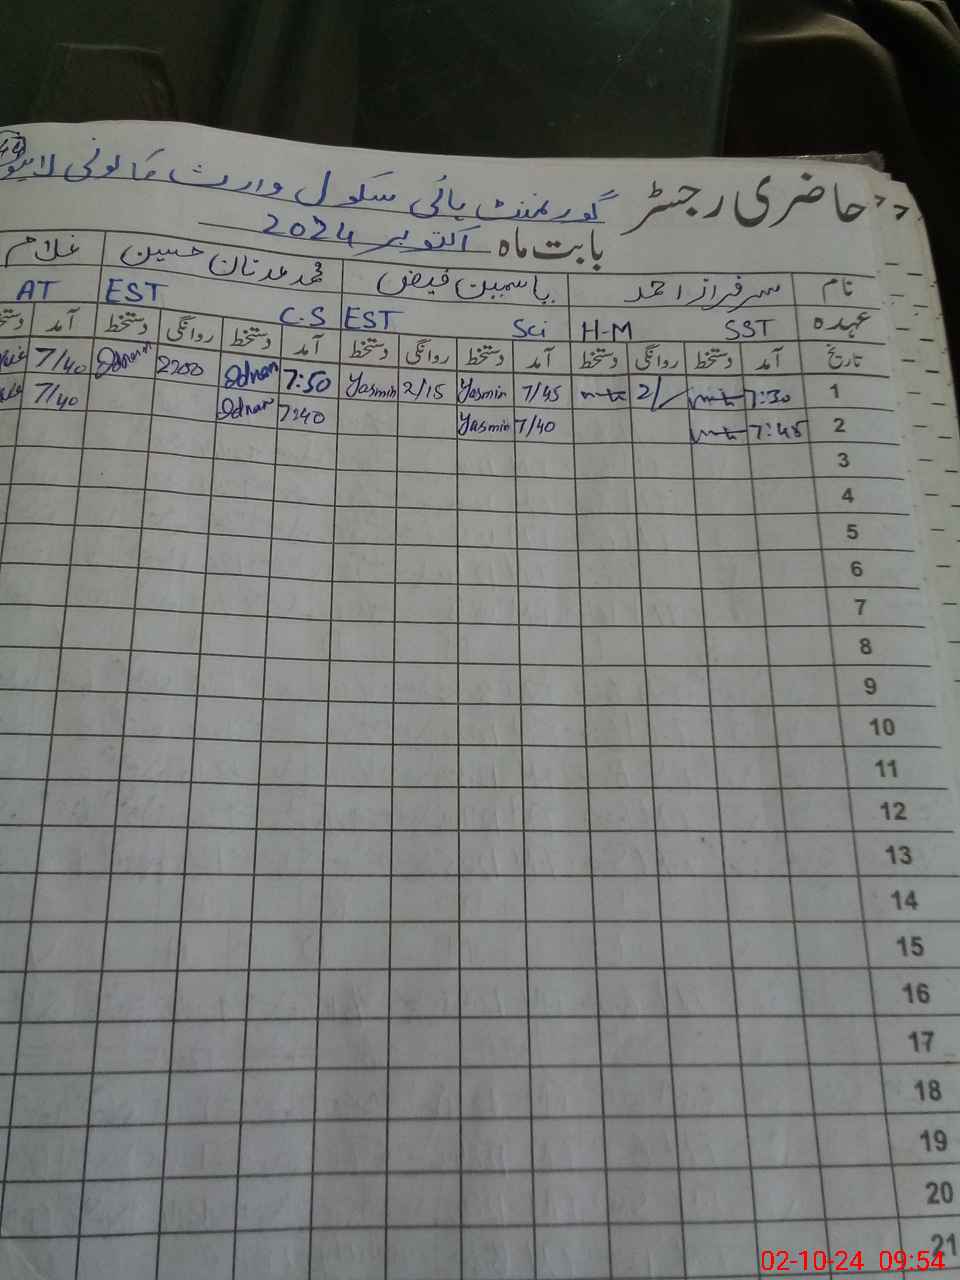 حاضری رجسٹر گورنمنٹ ہائی سکول وارث کالونی لاہور
بابت ماہ اکتوبر 2024
نام سرفراز احمد یاسمین فیض محمد عدنان حسین غلام
عہدہ SST H-M Sci EST C.S EST AT
تاریخ آمد دستخط روانگی دستخط آمد دستخط روانگی دستخط آمد دستخط روانگی دستخط آمد
1 7:30 2/ 7/45 Yasmin 2/15 Yasmin 7:50 Adnan 2200 Adnan 7/40
2 7:45 7/40 Yasmin 7240 Adnan 7/40
3
4
5
6
7
8
9
10
11
12
13
14
15
16
17
18
19
20
21
02-10-24 09:54